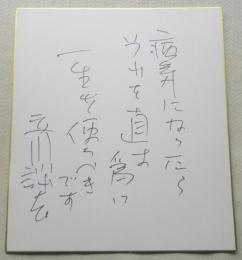 病気になったら
それを直す為に
一生を使うべき
です
立川談志